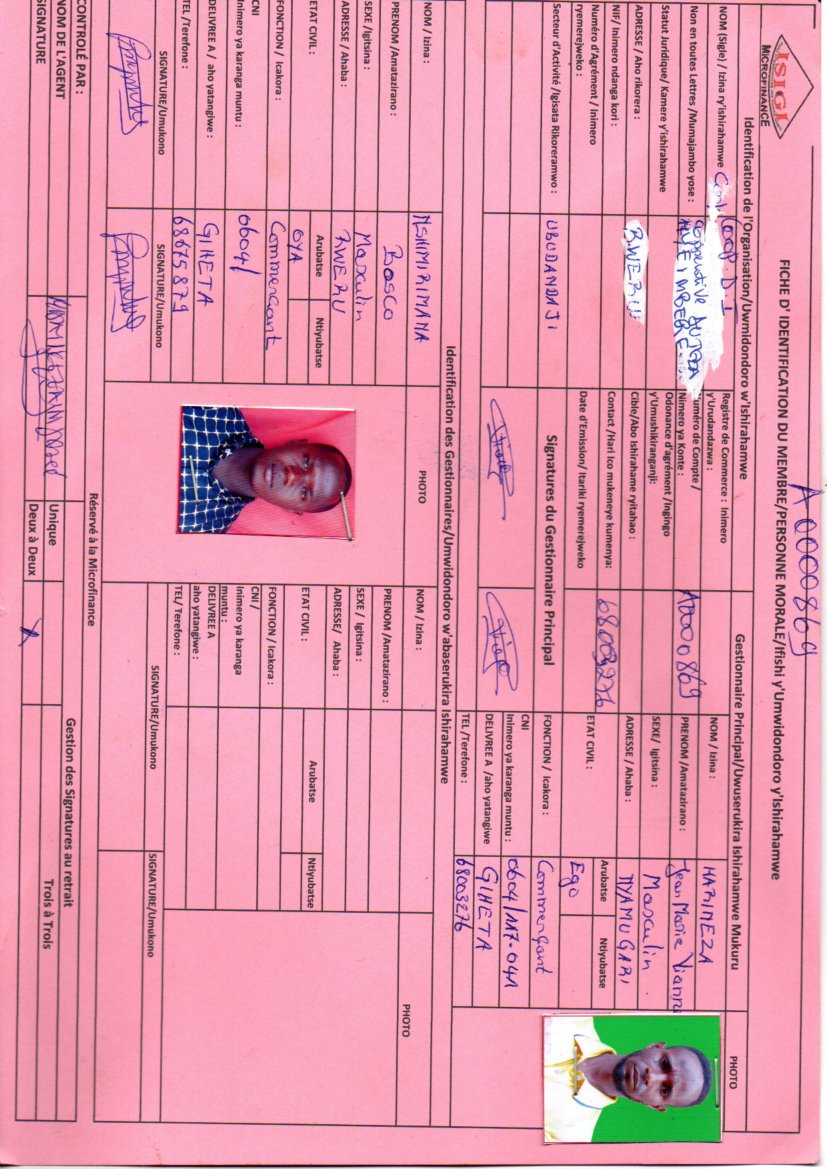 ISIGI
MICROFINANCE
A0000869
FICHE D' IDENTIFICATION DU MEMBRE/PERSONNE MORALE/Ifishi y'Umwidondoro y'Ishirahamwe
Identification de l'Organisation/Uwmidondoro w'Ishirahamwe
Gestionnaire Principal/Uwuserukira Ishirahamwe Mukuru
PHOTO
NOM (Sigle) / Izina ry'ishirahamwe
COOP. D. I
Non en toutes Lettres /Mumajambo yose :
Statut Juridique/ Kamere y'ishirahamwe
ADRESSE / Aho rikorera :
RWERU
NIF/ Inimero ndanga kori :
Numéro d'Agrément / Inimero
ryemerejweko :
Secteur d'Activité /Igisata Rikoreramwo :
UBUDANDAJI
Registre de Commerce : Inimero
y'Urudandazwa :
Numéro de Compte /
Nimero ya Konte :
A0000869
Odonance d'agrément /Ingingo
y'Umushikiranganji:
Cible/Abo Ishirahame ryitaho :
Contact /Hari ico mukeneye kumenya:
68003276
Date d'Emission/ Itariki ryemerejweko
Signatures du Gestionnaire Principal
NOM / Izina :
HARIMEZA
PRENOM /Amatazirano :
Jean Marie Vianne
SEXE/ Igitsina :
Masculin
ADRESSE / Ahaba :
NYAMUGARI
ETAT CIVIL :
Arubatse
Ntiyubatse
Ego
FONCTION / Icakora :
Commerçant
CNI
Inimero ya karanga muntu :
0604/117.041
DELIVREE A /aho yatangiwe
GIHETA
TEL /Terefone :
68003276
Identification des Gestionnaires/Umwidondoro w'abaserukira Ishirahamwe
NOM / Izina :
NSHIMIRIMANA
PRENOM /Amatazirano :
Bosco
SEXE /Igitsina :
Masculin
ADRESSE / Ahaba :
RWERU
ETAT CIVIL :
Arubatse
Ntiyubatse
OYA
FONCTION / Icakora :
Commerçant
CNI
Inimero ya karanga muntu :
0604/
DELIVREE A / aho yatangiwe :
GIHETA
TEL /Terefone :
68675879
SIGNATURE/Umukono
SIGNATURE/Umukono
PHOTO
NOM / Izina :
PRENOM /Amatazirano :
SEXE / Igitsina :
ADRESSE/ Ahaba :
ETAT CIVIL :
Arubatse
Ntiyubatse
FONCTION / Icakora :
CNI /
Inimero ya karanga
muntu :
DELIVREE A
aho yatangiwe :
TEL/ Terefone :
SIGNATURE/Umukono
SIGNATURE/Umukono
PHOTO
Réservé à la Microfinance
CONTROLÉ PAR :
NOM DE L'AGENT
SIGNATURE
Gestion des Signatures au retrait
Unique
Deux à Deux
X
Trois à Trois